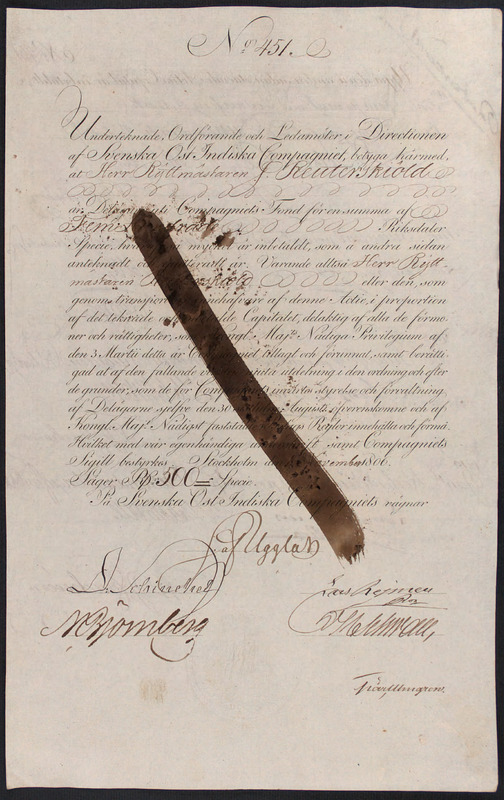 No 451.
Undertecknade, Ordförande och Ledamöter i Directionen
af Svenska Ost Indiska Compagniet, betyga härmed,
at Herr Ryttmästaren J. Reuterskiöld
är Delägare i Compagniets Fond för en summa af
Fem Riksdaler
Specie, hvilken är inbetald, som å andra sidan
antecknadt och qvitteradt är. Varande altså Herr Rytt-
mästaren Reuterskiöld eller den, som
genom transport af denne Actie, i proportion
af det tecknade Capitalet, delaktig af alla de förmo-
ner och rättigheter, som Kongl. Maj:ts Nådiga Privilegium af
den 3 Martii detta år Compagniet tillagt och förunnat, samt berätti-
gad at af den fallande utdelning i den ordning och efter
de grunder, som de för Compagniets inre styrelse och förvaltning
af Delägarne sjelfve den 30 Augusti förenskomne och af
Kongl. Maj:t Nådigst faststälde Reglor innehålla och förmå.
Hvilket med vår egenhändiga underskrift samt Compagniets
Sigill bestyrkes. Stockholm den November 1806.
Säger Rdr 500 Specie.
På Svenska Ost Indiska Compagniets vägnar
af Ugglas
Schinckel
Björnberg